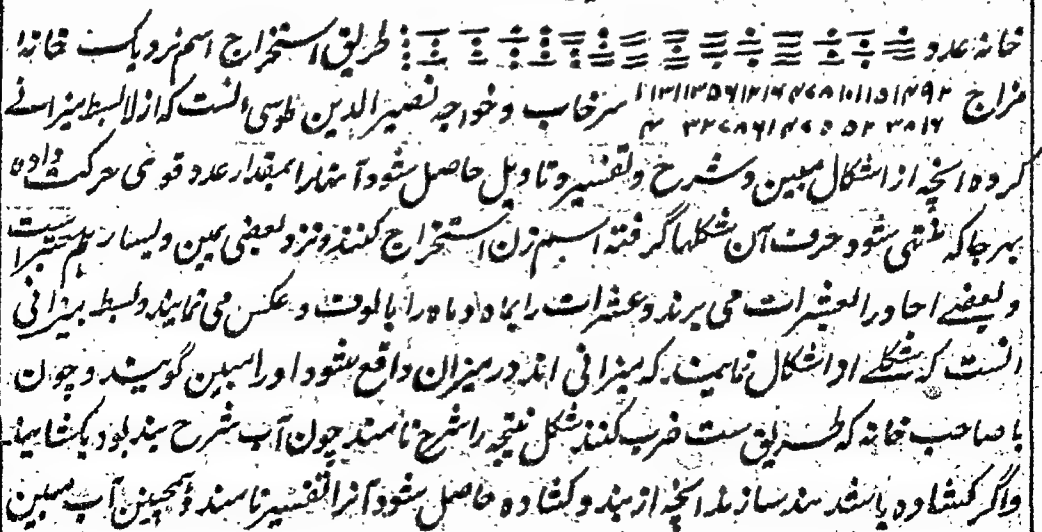 خانه عدد طریق استخراج اسم نزدیک خانه
مزاج سرخاب و خواجه نصیر الدین طوسی آنست که از لا بسط میزانے
کرده انچه از اشکال مبین و شرح و تفسیر و تاویل حاصل شود آنها را بمقدار عدد قوسی حرکت داده
بهر جا که منتهی شود حرف آن شکلها گرفته اسم زن استخراج کنند و نزد بعضی یمین و یسار هم معتبر است
و بعضے احاد را بعشرات می برند و عشرات را بماه و ماه را بالوف و عکس می نمایند و بسط میزانی
انست که شکلے را و اشکال نمایند که میزانی اند در میزان واقع شود او را مبین گویند و چون
با صاحب خانه که طریق ست ضرب کنند شکل نتیجه را شرح نامند چون آب شرح بند بود بکشایند
واگر کشاده باشد بند سازند انچه از بند و کشاده حاصل شود آنرا تفسیر نامند و همچنین آب مبین